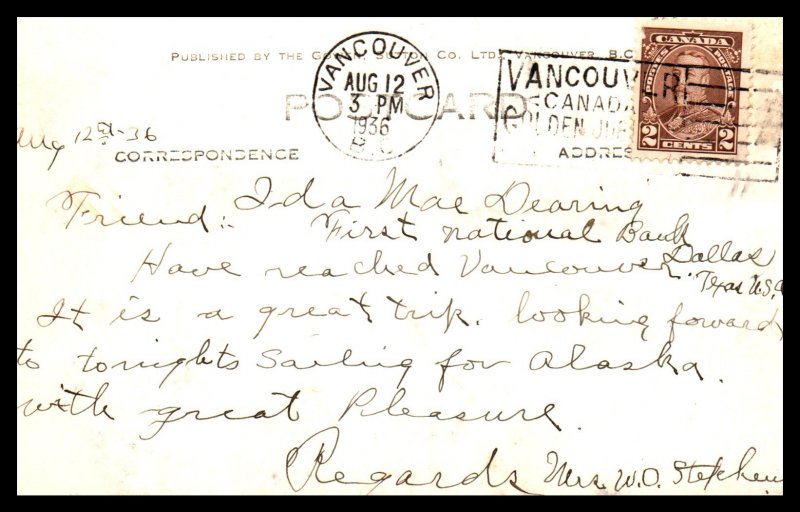 PUBLISHED BY THE CO. LTD. VANCOUVER, B.C.
VANCOUVER
AUG 12
3 PM
1936
B.C.
VANCOUVER
CANADA
GOLDEN
ADDRESS
CANADA
POSTES POSTAGE
2 CENTS 2
POST CARD
CORRESPONDENCE
Aug 12 - 36
Friend: Ida Mae Dearing
First national Bank
Dallas
Texas U.S.A
Have reached Vancouver.
It is a great trip. looking forward
to tonights Sailing for Alaska.
with great Pleasure.
Regards Mrs. W.O. Stephen